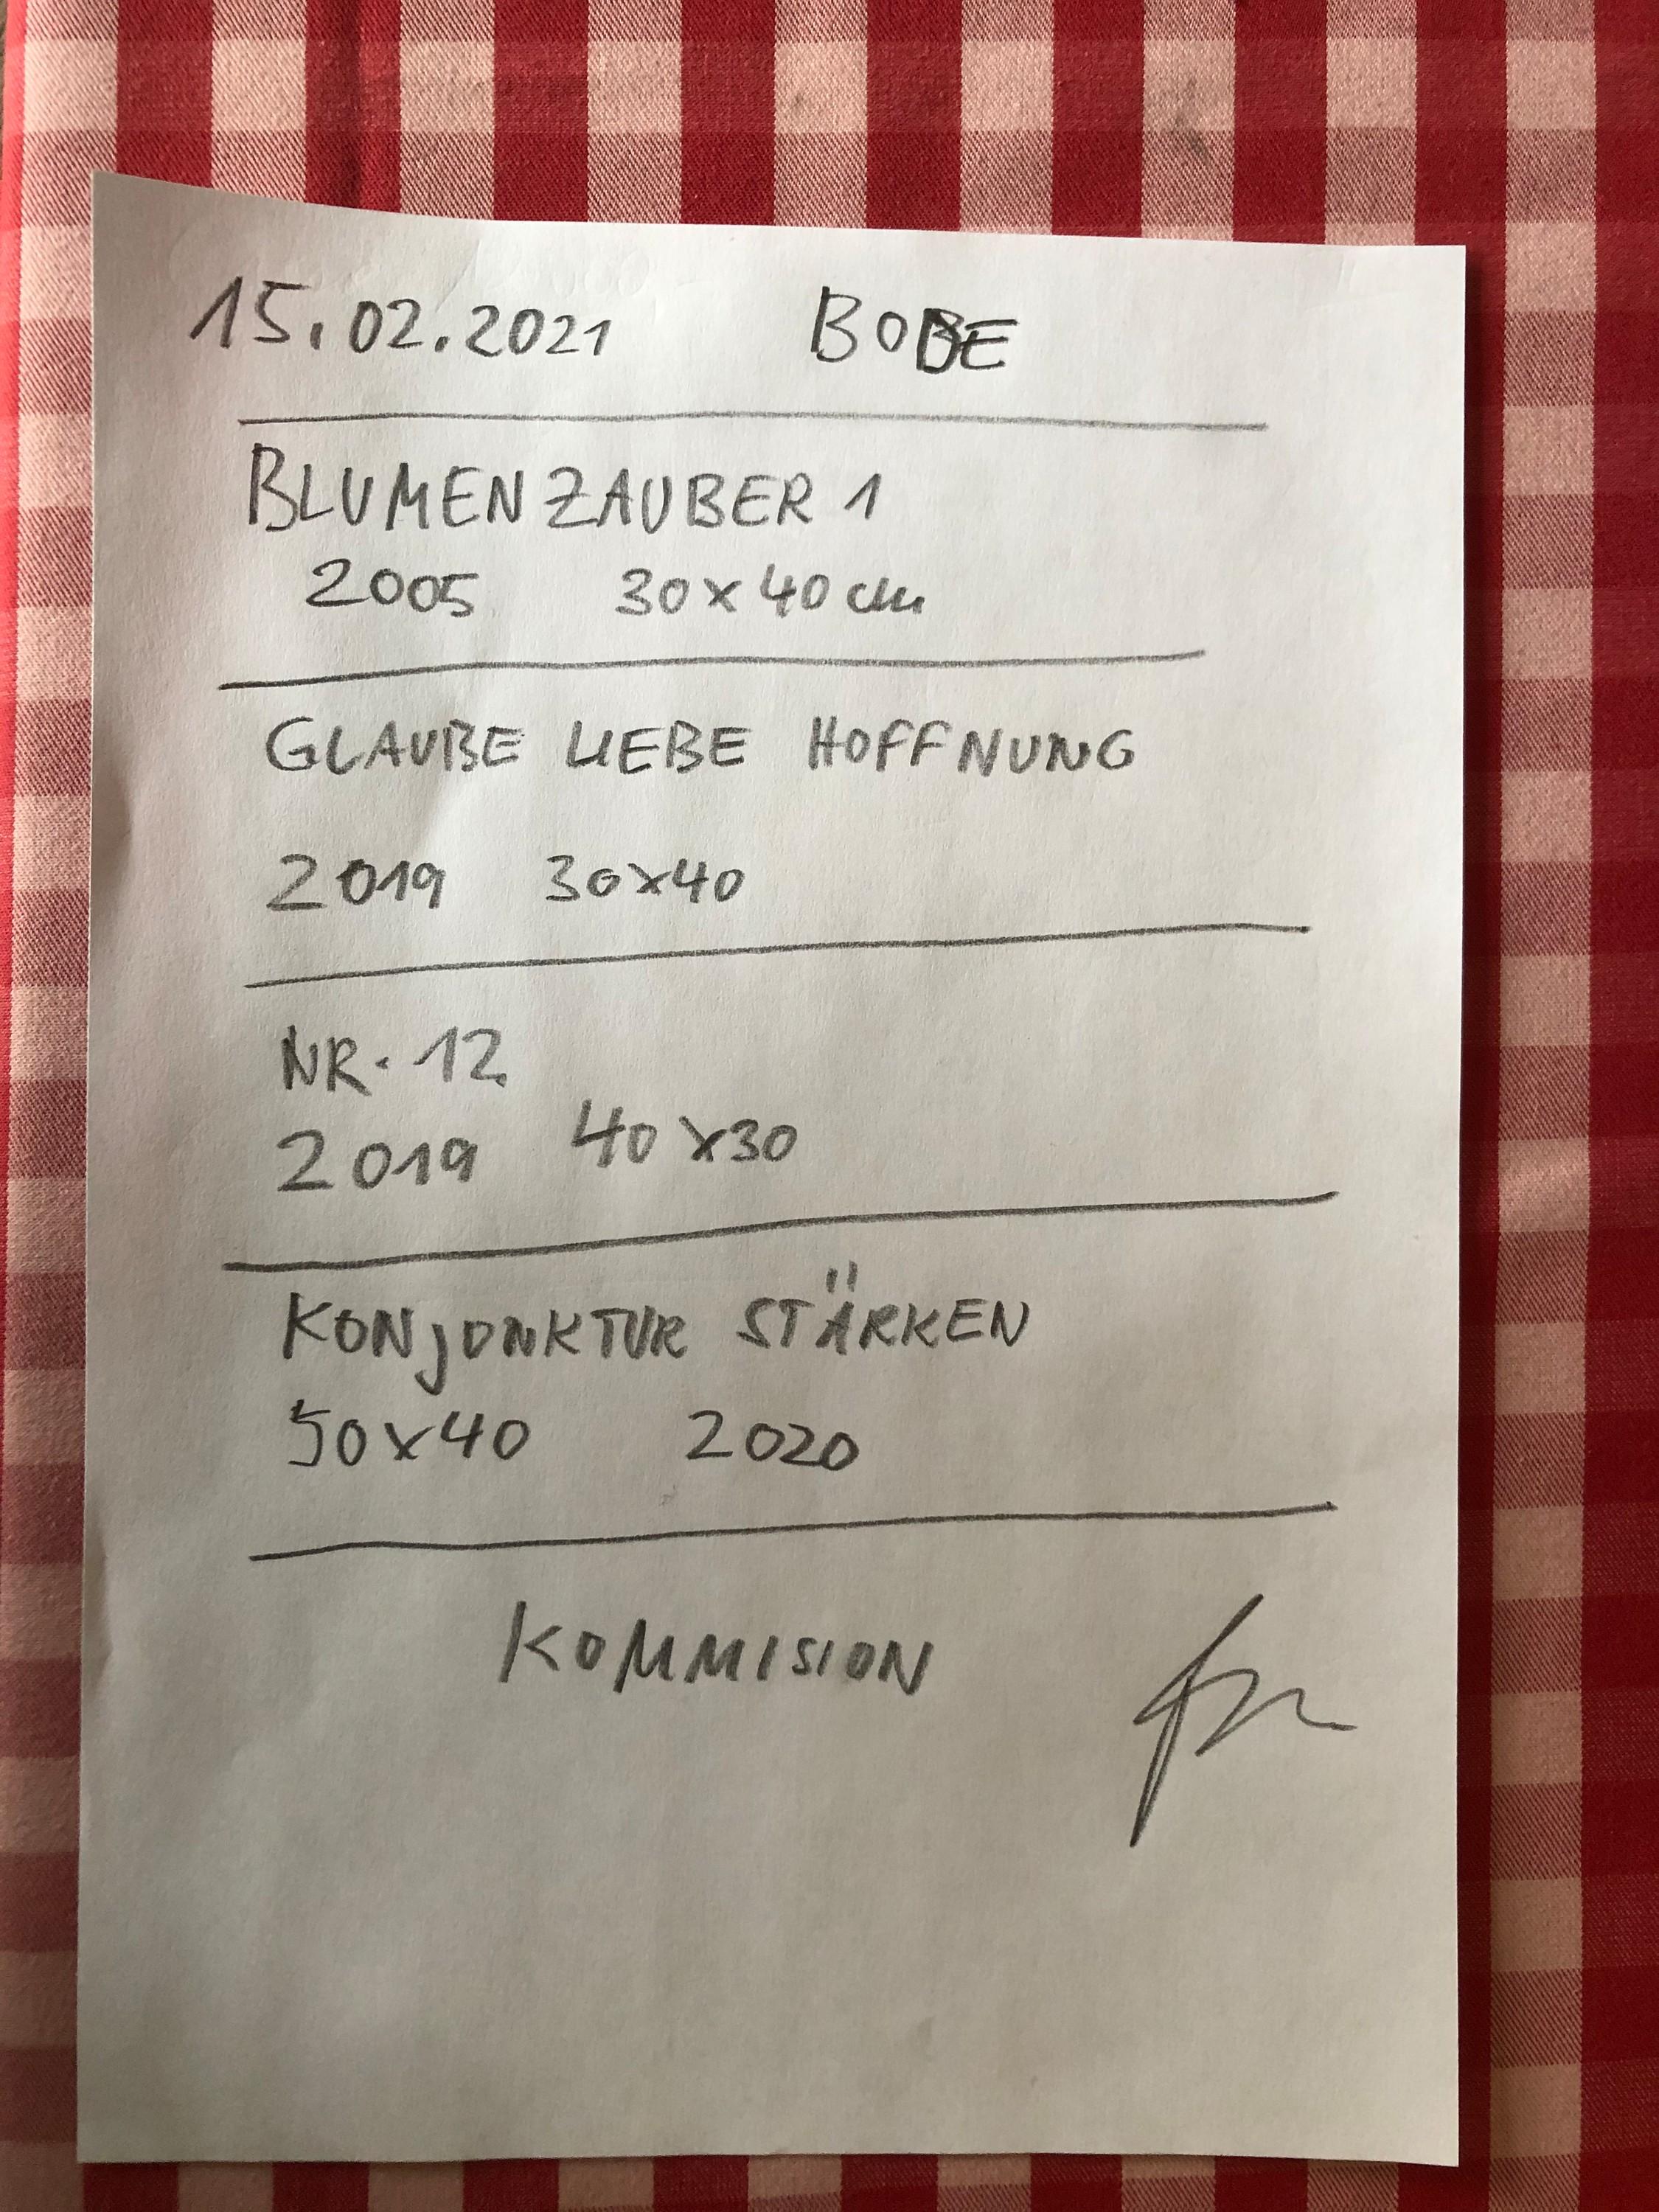 15.02.2021 BOBE
BLUMENZAUBER 1
2005 30x40 cm
GLAUBE LIEBE HOFFNUNG
2019 30x40
NR. 12
2019 40x30
KONJUNKTUR STÄRKEN
50x40 2020
KOMMISION